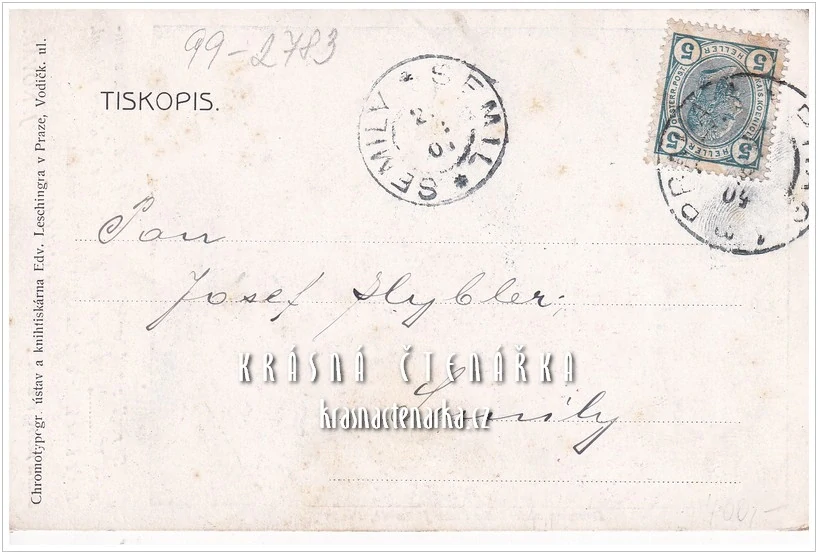 99-2783
TISKOPIS.
SEMIL * SEMILY *
5 5
KAIS. KOENIGL. OESTERR. POST
HELLER HELLER
5 5
Chromotypogr. ústav a knihtiskárna Edv. Leschingra v Praze, Vodičk. ul.
Pan
Josef
KRÁSNÁ ČTENÁŘKA
krasnactenarka.cz
Semily